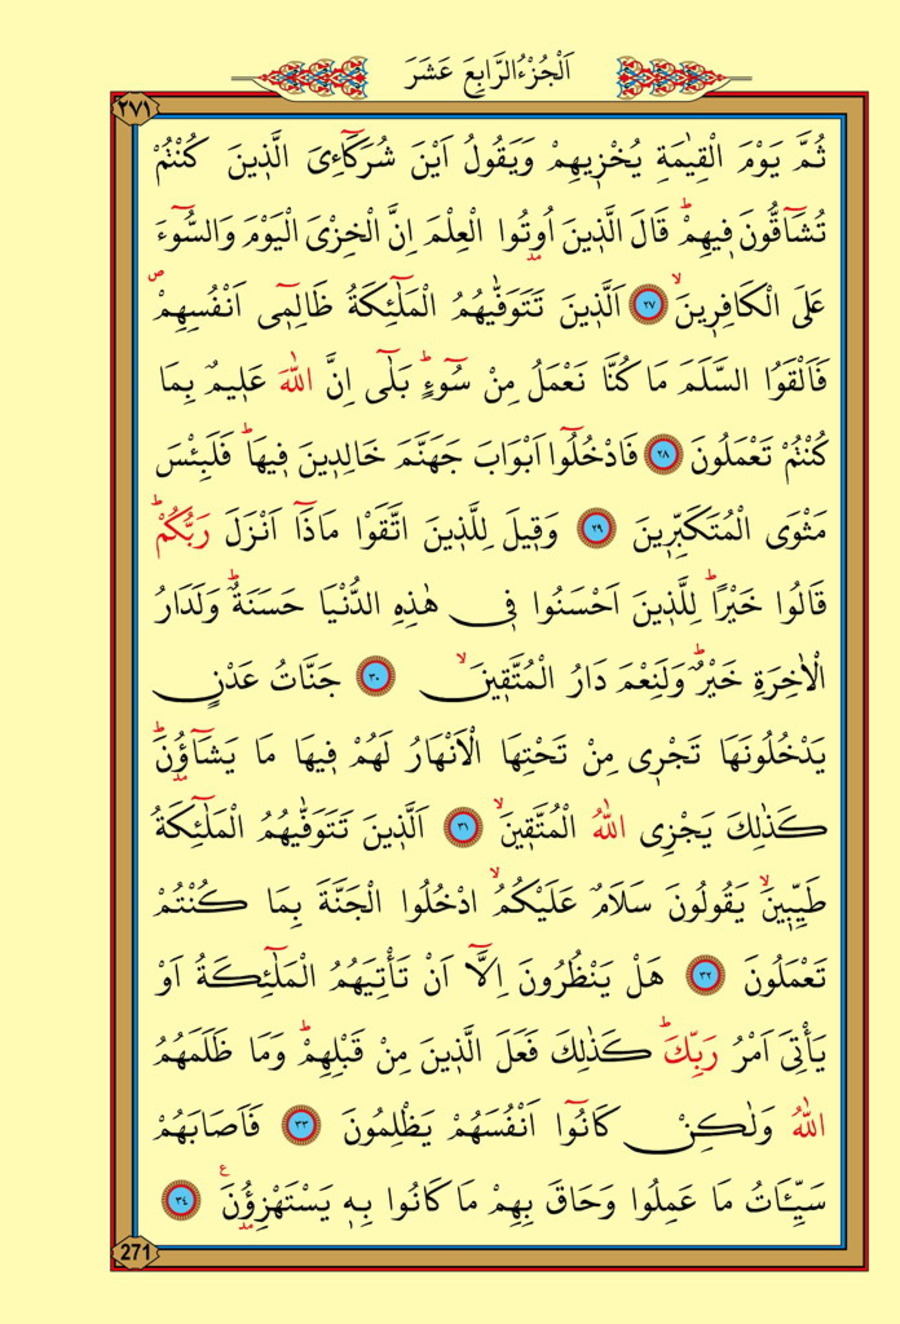 اَلْجُزْءُ الرَّابِعَ عَشَرَ
٢٧١
ثُمَّ يَوْمَ الْقِيٰمَةِ يُخْزٖيهِمْ وَيَقُولُ اَيْنَ شُرَكَٓاءِىَ الَّذٖينَ كُنْتُمْ
تُشَٓاقُّونَ فٖيهِمْؕ قَالَ الَّذٖينَ اُوتُوا الْعِلْمَ اِنَّ الْخِزْىَ الْيَوْمَ وَالسُّٓوءَ
عَلَى الْكَافِرٖينَۙ ٢٧ اَلَّذٖينَ تَتَوَفّٰيهُمُ الْمَلٰٓئِكَةُ ظَالِمٖٓى اَنْفُسِهِمْࣕ
فَاَلْقَوُا السَّلَمَ مَا كُنَّا نَعْمَلُ مِنْ سُٓوءٍؕ بَلٰٓى اِنَّ اللّٰهَ عَلٖيمٌ بِمَا
كُنْتُمْ تَعْمَلُونَ ٢٨ فَادْخُلُٓوا اَبْوَابَ جَهَنَّمَ خَالِدٖينَ فٖيهَاؕ فَلَبِئْسَ
مَثْوَى الْمُتَكَبِّرٖينَ ٢٩ وَقٖيلَ لِلَّذٖينَ اتَّقَوْا مَاذَٓا اَنْزَلَ رَبُّكُمْؕ
قَالُوا خَيْرًاؕ لِلَّذٖينَ اَحْسَنُوا فٖى هٰذِهِ الدُّنْيَا حَسَنَةٌؕ وَلَدَارُ
الْاٰخِرَةِ خَيْرٌؕ وَلَنِعْمَ دَارُ الْمُتَّقٖينَۙ ٣٠ جَنَّاتُ عَدْنٍ
يَدْخُلُونَهَا تَجْرٖى مِنْ تَحْتِهَا الْاَنْهَارُ لَهُمْ فٖيهَا مَا يَشَٓاؤُنَؕ
كَذٰلِكَ يَجْزِى اللّٰهُ الْمُتَّقٖينَۙ ٣١ اَلَّذٖينَ تَتَوَفّٰيهُمُ الْمَلٰٓئِكَةُ
طَيِّبٖينَۙ يَقُولُونَ سَلَامٌ عَلَيْكُمُۙ ادْخُلُوا الْجَنَّةَ بِمَا كُنْتُمْ
تَعْمَلُونَ ٣٢ هَلْ يَنْظُرُونَ اِلَّٓا اَنْ تَأْتِيَهُمُ الْمَلٰٓئِكَةُ اَوْ
يَأْتِىَ اَمْرُ رَبِّكَؕ كَذٰلِكَ فَعَلَ الَّذٖينَ مِنْ قَبْلِهِمْؕ وَمَا ظَلَمَهُمُ
اللّٰهُ وَلٰكِنْ كَانُٓوا اَنْفُسَهُمْ يَظْلِمُونَ ٣٣ فَاَصَابَهُمْ
سَيِّـَٔاتُ مَا عَمِلُوا وَحَاقَ بِهِمْ مَا كَانُوا بِهٖ يَسْتَهْزِؤُنَ ع ٣٤
271